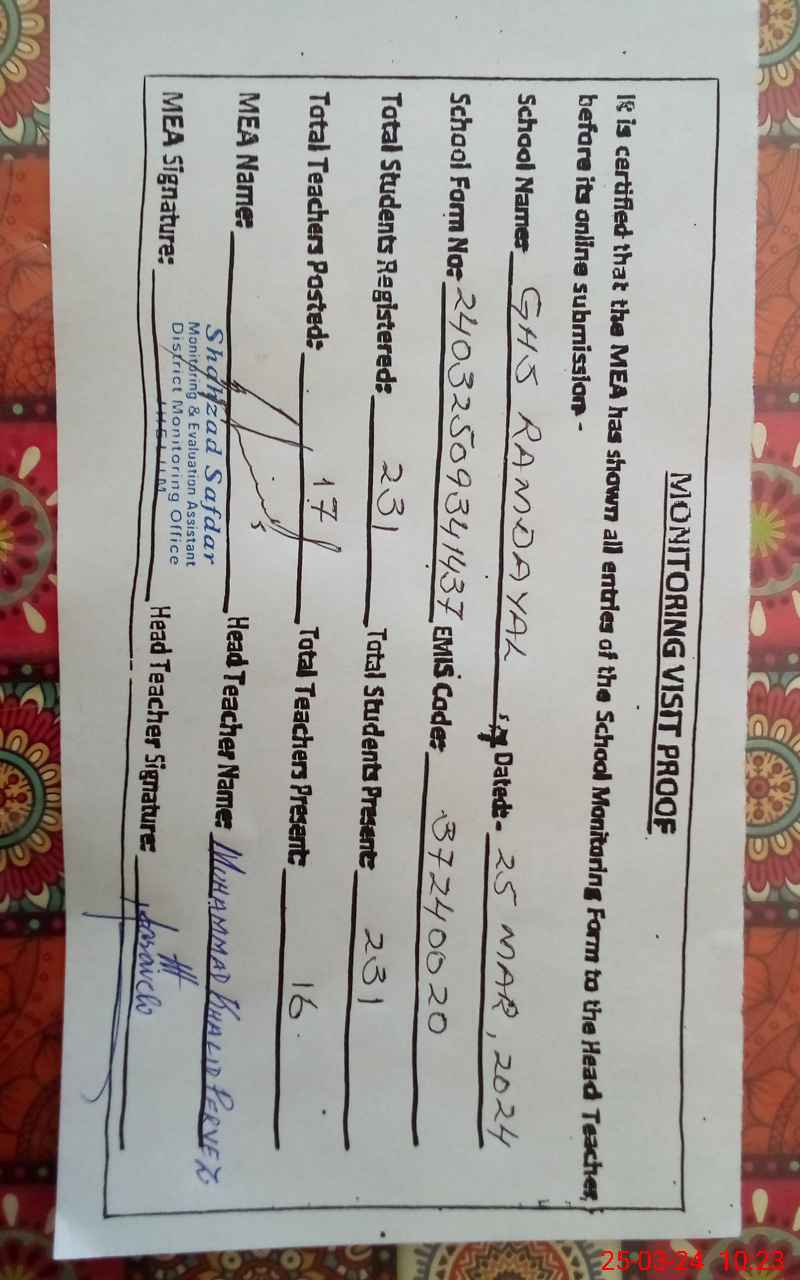 MONITORING VISIT PROOF
It is certified that the MEA has shown all entries of the School Monitoring Form to the Head Teacher,
before its online submission-
School Name: GHS RAMDAYAL Dated:- 25 MAR, 2024
School Form No: 24032509341437 EMIS Code: 37240020
Total Students Registered: 231 Total Students Present: 231
Total Teachers Posted: 17 Total Teachers Present: 16
MEA Name: Head Teacher Name: MUHAMMAD KHALID PERVEZ
Shahzad Safdar
Monitoring & Evaluation Assistant
District Monitoring Office
JHELUM
MEA Signature: Head Teacher Signature:
25-03-24 10:23